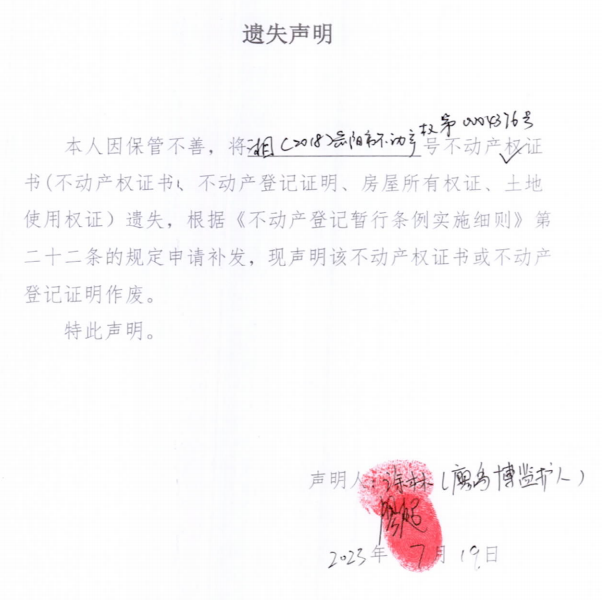 遗失声明
权第0004376号
本人因保管不善，将湘(2018)岳阳市不动产号不动产权证
书(不动产权证书、不动产登记证明、房屋所有权证、土地
使用权证）遗失，根据《不动产登记暂行条例实施细则》第
二十二条的规定申请补发，现声明该不动产权证书或不动产
登记证明作废。
特此声明。
声明人：涂林(博监护人)
2023年7月19日